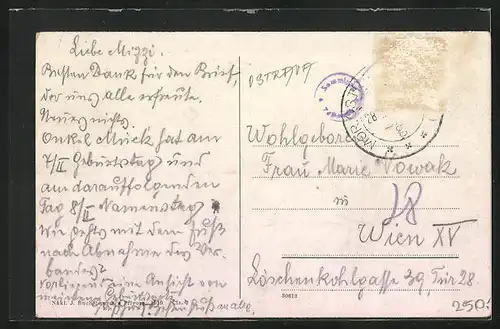 Liebe Mizzi.
Besten Dank für den Brief,
der uns alle erfreute.
Neues nichts.
Onkel Muck hat am
7/II Geburtstag und
am darauffolgenden
Tag 8/II Namenstag
Wie geht's mit dem Fuß
nach Abnahme des Ver-
bandes?
eine Ansicht von
Wohlgeboren
Frau Marie Nowak
in
18
Wien XV
Löschenkohlgasse 39, Tür 28.
30612
250.